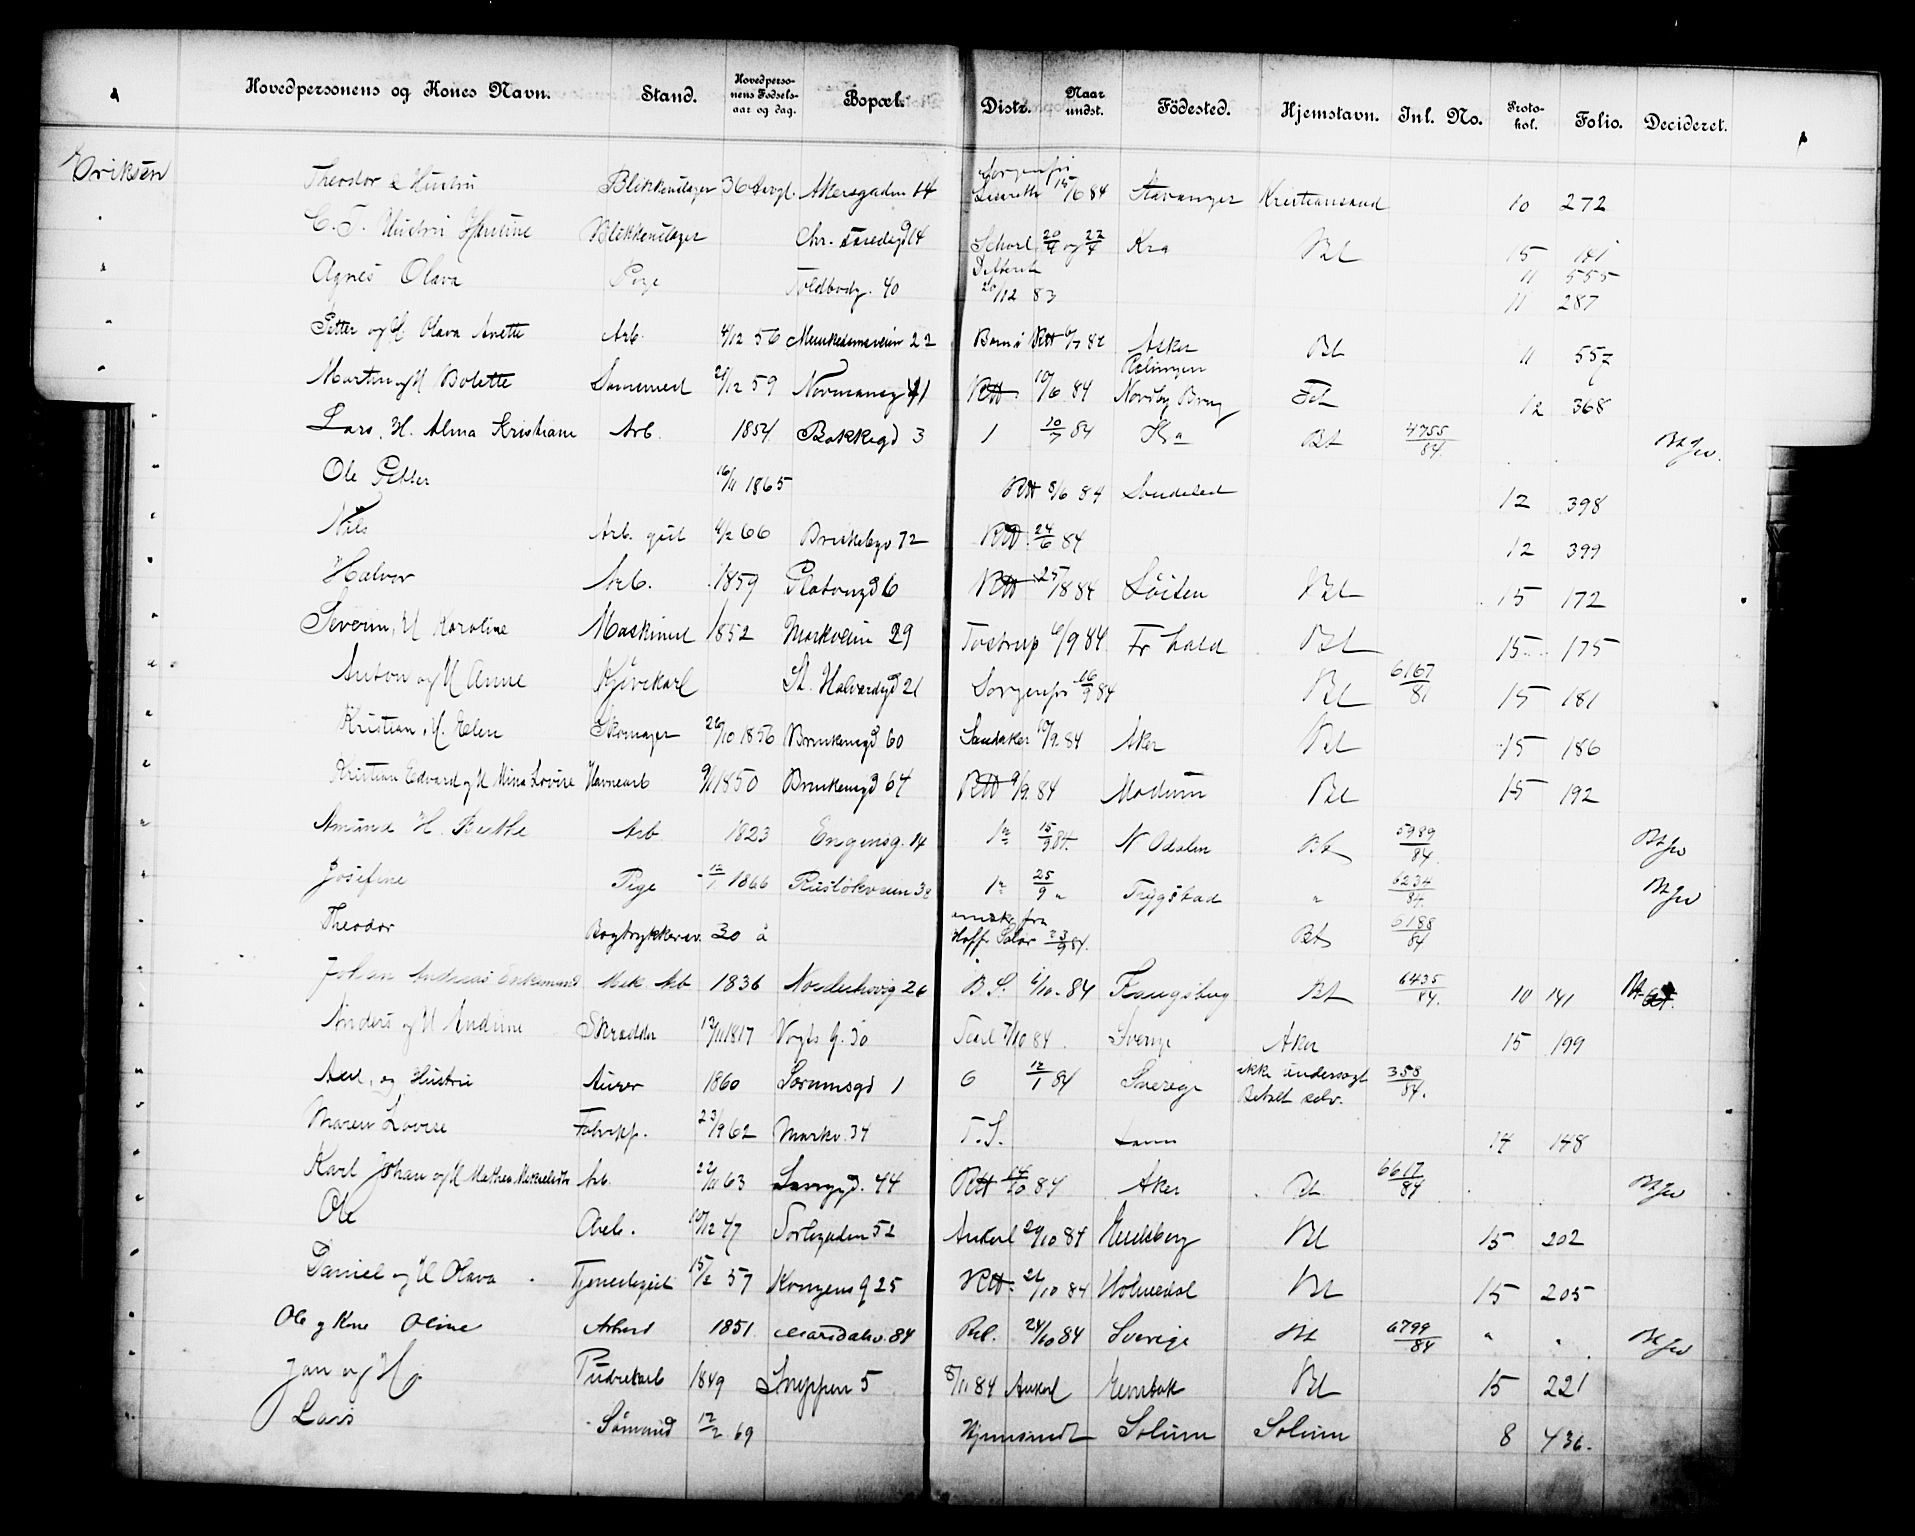 Hovedpersonens og Kones Navn. Stand. Hovedpersonens Fødselsaar og dag. Bopæl. Distr. Naar undst. Födested. Hjemstavn. Inl. No. Protokol. Folio. Decideret.
Eriksen Theodor & Hustru Blikkenslager 36 Aergl. Akersgaden 14 Sorgenfri Lasareth 15/6 84 Stavanger Kristianssand 10 272
C. T. Hustru Blikkenslager Chr. 14 20/4 og 22/4 Kra Bl 15 141
Agnes Olava Pige Toldbodg. 40 20/12 83 11 555
11 287
Petter og H. Olava Anette Arb. 4/12 56 Munkedamsveien 22 Rtt 6/7 82 Asker Bl 11 557
Martin og H Bolette 21/12 59 Normannsg 41 Rtt 10/6 84 Nordby Brug Fet 12 368
Lars, H. Alma Kristiane Arb. 1854 Bakkegd 3 1 10/7 84 Kra Bt 4755/84 Bt Jv.
Ole Petter 16/11 1865 Rtt 8/6 84 Söndeled 12 398
Nils Arb. gut 4/2 66 Briskebyv 72 Rtt 24/6 84 12 399
Halvor Arb. 1859 Platousgd 6 Rtt 25/8 84 Löiten Bl 15 172
Severin, H Karoline Maskinist 1852 Markveien 29 Tostrup 6/9 84 Fr hald Bl 15 175
Anton og H Anne Kjörekarl St. Halvardsgd 21 Sorgenfri 16/9 84 Bl 6167/81 15 181
Kristian, H. Elen Skomager 26/10 1856 Brinkensgd 60 Sandaker 10/9 84 Aker Bl 15 186
Kristian Edvard og H Mina Lovise Havnearb 9/11 1850 Brinkensgd 64 Rtt 9/9 84 Modum Bl 15 192
Amund H. Berthe Arb 1823 Engensg. 14 1a 15/9 84. N Odalen Bt 5989/84 Bt Jv
Josefine Pige 12/1 1866 Ruslökveien 38 1a 25/9 " Trygstad " 6234/84 Bt Jv
Theodor Bogtrykkersv. 30 å fra Hoff Solør 23/9 84. Bt 6188/84
Johan Andreas Mek. Arb 1836 Norderhovsg 26 B. S. 6/10 - 84 Kongsberg Bt 6435/84. 10 141 Bt
Anders og H Andrine Skrædder 12/11 1817 Vogts g. 30 7/10 84 Sverige Aker 15 199
Axel, og Hustru Murer 1860 Sörumsgd 1 6 12/1 84 Sverige ikke undersøgt Betalt selv. 358/84.
Maren Lovise Fabrikp. 23/9 62 Markv. 34 T. S. 14 148
Karl Johan og H Mathea Arb. 22/11 63 Langgd. 44 Rtt 14/10 84 Aker Bt 6617/84 Bt Jv
Ole Arb. 10/12 47 Torvegaden 52 Ankerl 20/10 84 Bl 15 202
Daniel og H Olava Tjenestegut 15/2 57 Kongens g 25 Rtt 21/10 84 Holmedal Bl 15 205
Ole og Kone Oline Arbeid 1851 Maridalsv. 84 Rtl. 24/10 84 Sverige Bt 6799/84 " " Bt Jv
Jan og H. Pudrekarl 1849 Sneppen 5 8/11 84 Ankerl Bl 15 221
Lars Sömand 12/2 69 Hjemsendt Solum Solum 8 436.